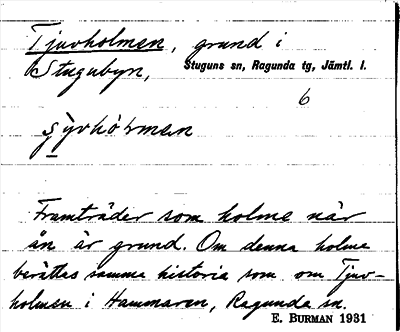 Tjuvholmen, grund i
Stugubyn, Stuguns sn, Ragunda tg, Jämtl. l.
6
Framträder som holme när
ån är grund. Om denna holme
berättas samma historia som om Tjuv-
holmen i Hammaren, Ragunda sn.
E. BURMAN 1931